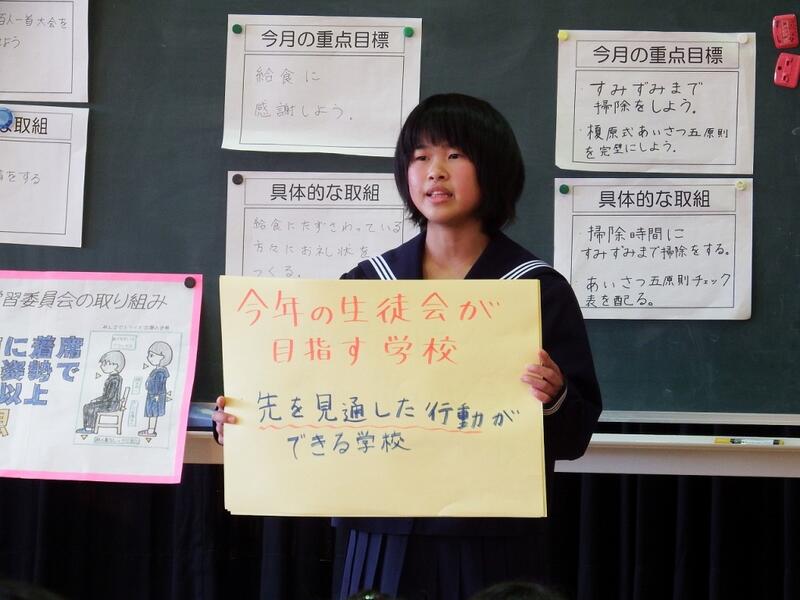 百人一首大会を
な取組
をする
今月の重点目標
給食に
感謝しよう。
具体的な取組
給食にたずさわっている
方々にお礼状を
つくる。
今月の重点目標
すみずみまで
掃除をしよう。
・榎原式あいさつ五原則
を完璧にしよう。
具体的な取組
・掃除時間に
すみずみまで掃除をする。
・あいさつ五原則チェック
表を配る。
習委員会の取り組み
に着席
姿勢で
以上
今年の生徒会が
目指す学校
先を見通した行動が
できる学校